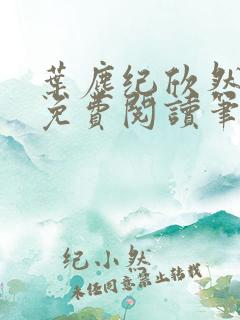 葉塵纪欣然
免費閱讀筆
纪小然
未经同意禁止转载